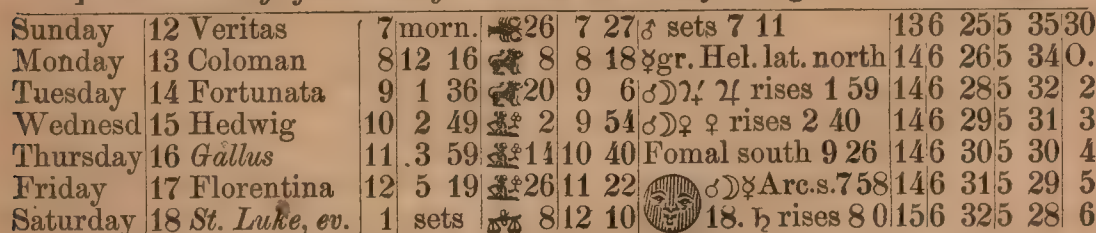 Sunday 12 Veritas 7 morn. 26 7 27 ♂ sets 7 11 13 6 25 5 35 30
Monday 13 Coloman 8 12 16 8 8 18 ☿gr. Hel. lat. north 14 6 26 5 34 O.
Tuesday 14 Fortunata 9 1 36 20 9 6 ☌☽♃ ♃ rises 1 59 14 6 28 5 32 2
Wednesd 15 Hedwig 10 2 49 2 9 54 ☌☽♀ ♀ rises 2 40 14 6 29 5 31 3
Thursday 16 Gallus 11 .3 59 14 10 40 Fomal south 9 26 14 6 30 5 30 4
Friday 17 Florentina 12 5 19 26 11 22 ☌☽☿ Arc.s.7 58 14 6 31 5 29 5
Saturday 18 St. Luke, ev. 1 sets 8 12 10 18. ♄ rises 8 0 15 6 32 5 28 6